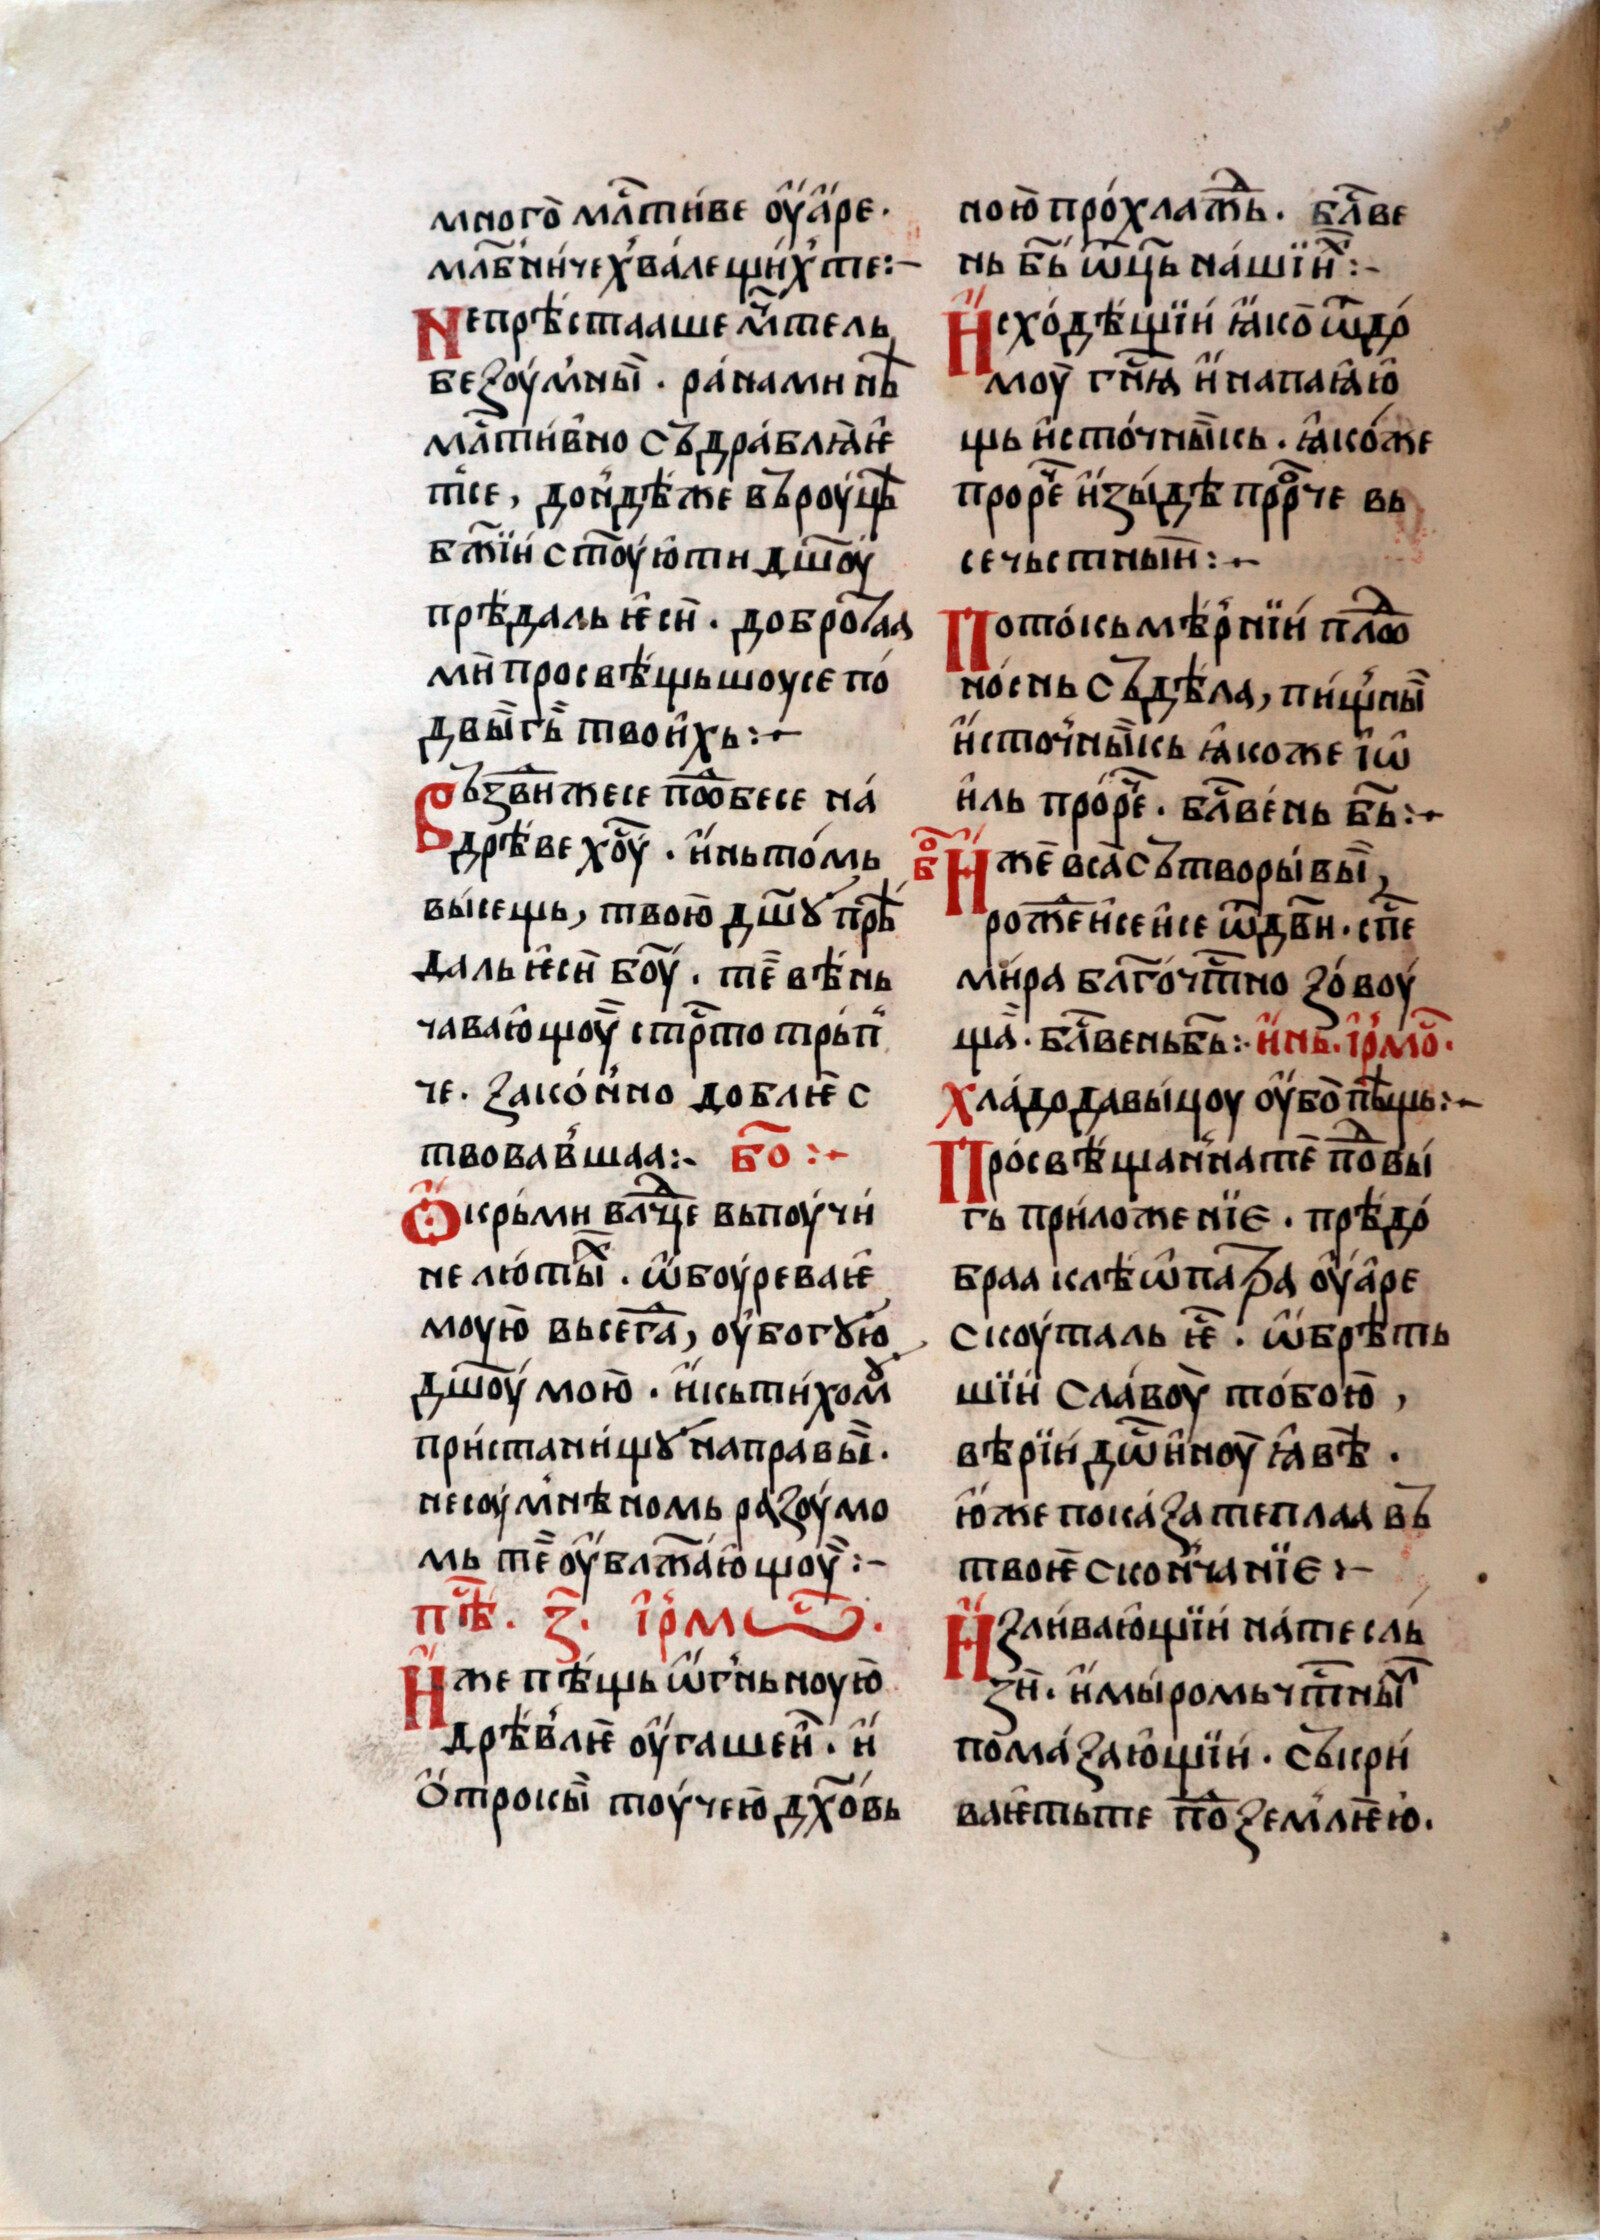 многѡ̑ мл҃тиве оу̑а̑ре.
мл҃бниче хвалещихте:–
Непрѣстааше мч҃тель
безоумныӥ. ранами нѣ
мл҃тивно съдраблꙗѥ
тсе, доидѣже въроуцѣ
бж҃їи ст҃оую ти дш҃оу
прѣдаль ѥси. добротаа
ми просвѣщьшоусе по
двыгѣ твоихь:–
Възвижесе поⷣбесе на
дрѣве хо҃у. иньтомь
высещь, твою дш҃ꙋ прѣ
даль ѥси бо҃у. те вѣнь
чаваюшоу стр҃то трьп
че. законно доблѥ с
твовавшаа:– бо҃:–
Окрьми влⷣчце вьпоучи
не лютыӥ. ѡбоуреваѥ
моую вьсегⷣа, оубогꙋю
дш҃оу мою. иксьтихомꙋ
пристанищꙋ направыӥ.
несоумнѣномь разоумо
мь те оублж҃ающоу:–
пѣⷭ. з҃. їрмѡⷭ.
Иже пѣщь ѡгньноую
дрѣвлѥ оугашеи. и
ѡтрокыӥ тоучею дх҃овь
ною прохлажⷣь. бл҃ве
нь бь҃ ѡц҃ь нашїиⷯ:–
Исходѣщїи ꙗко ѡдро
моу гн҃ꙗ и напаꙗю
щь источныкь. ꙗкоже
прорⷱе изыдѣ прⷪрче вь
сечьстныи:–
Потокьмѣрнїи плⷣо
носнь съдѣла, пищныӥ
источныкь ꙗкоже їѡ
иль прорⷱе. бл҃вень бь҃:–
бо҃ Иже всꙗ сътворывыӥ,
рожⷣеисе исе ѡдв҃и. сп҃се
мира благочⷭтно зовоу
ща. бл҃веньбь҃: инь. їрмоⷭ.
Хладодавыцоу оубо пѣщь:–
Просвѣщаннате поⷣвы
гь приложенїе. прѣдо
браа клѣѡпатра оуаре
скоуталь ѥ. ѡбрѣть
шїи славоу тобою,
вѣрїи дѡиноу ꙗвѣ.
юже показа теплаа въ
твоѥ скончанїе:–
Изливающїи на те сль
зи. и мыромьчⷭтныӥ
помазающїи. съкри
ваѥтьте по землѥю.